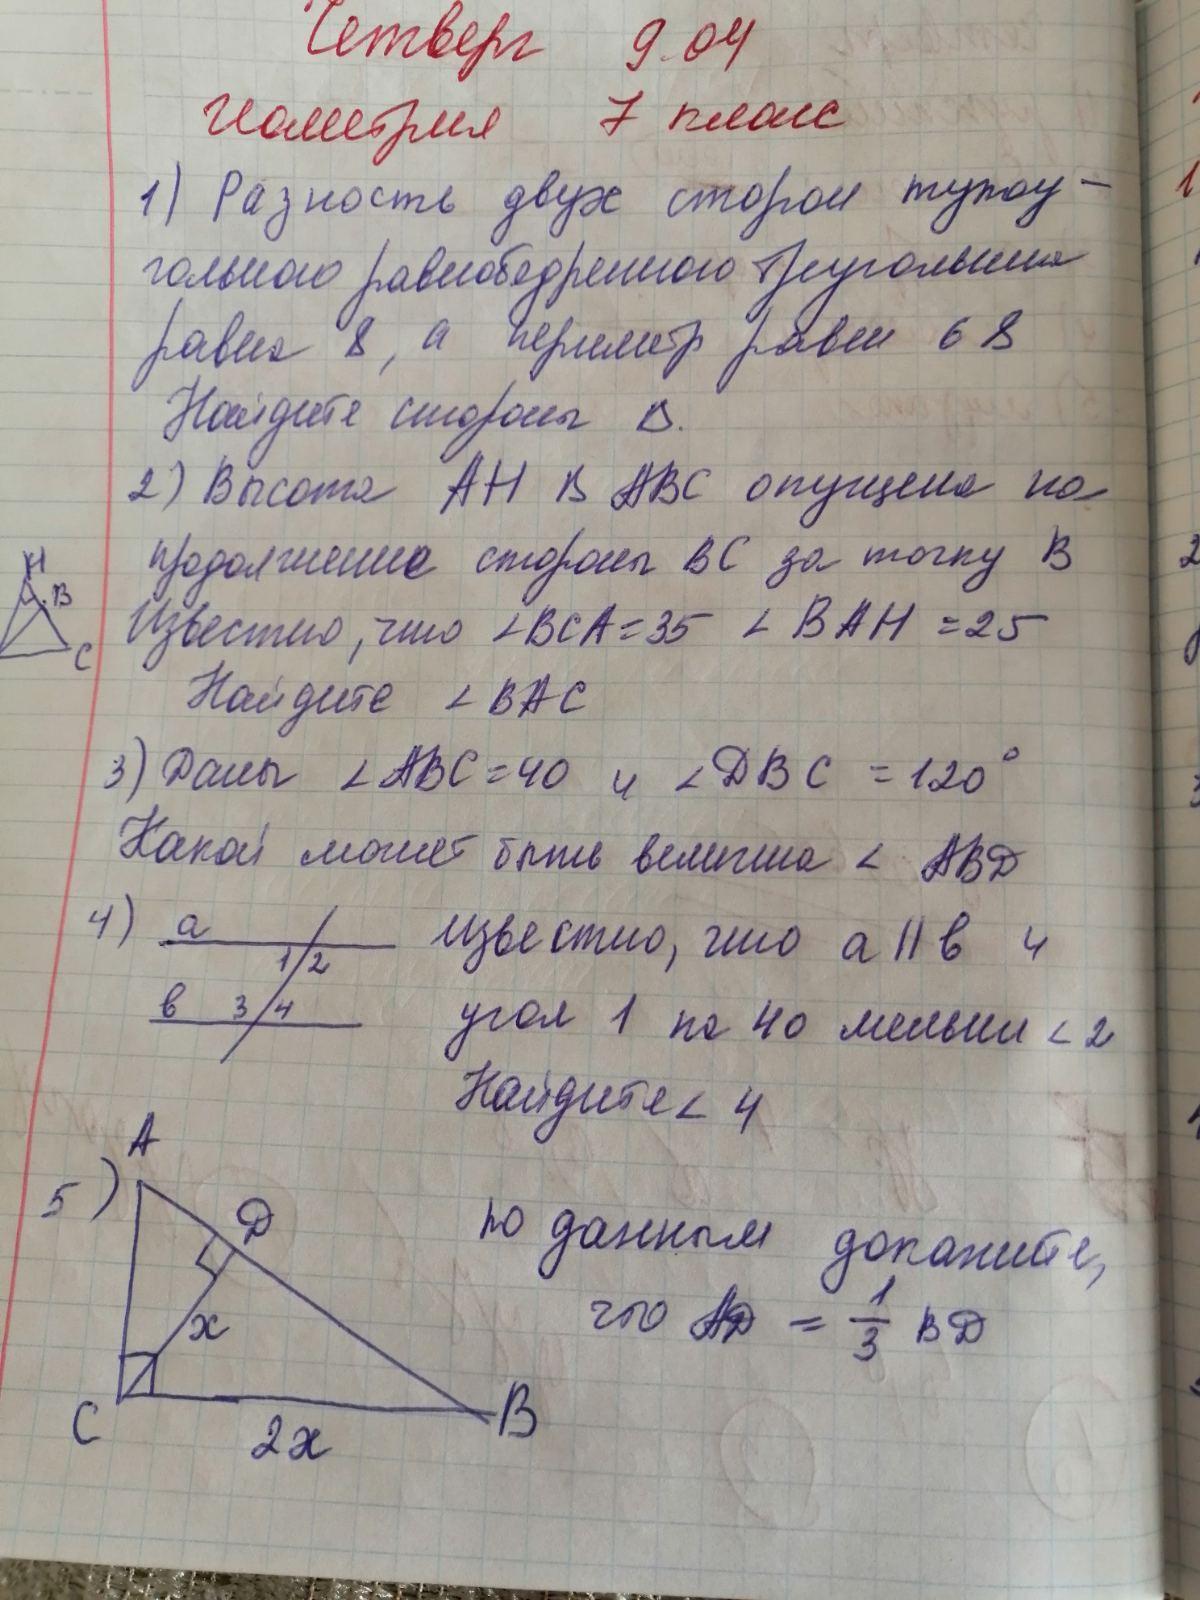 Четверг 9.04
Геометрия 7 класс
1) Разность двух сторон тупоу-
гольного равнобедренного треугольника
равна 8, а периметр равен 68
Найдите стороны Δ.
2) Высота AH в ABC опущена на
продолжение стороны BC за точку B
Известно, что ∠BCA=35 ∠BAH=25
Найдите ∠BAC
H
B
C
3) Даны ∠ABC=40 и ∠DBC=120°
Какой может быть величина ∠ABD
4) Известно, что a||в и
угол 1 на 40 меньше ∠2
Найдите ∠4
a
1 2
в 3 4
5) По данным докажите,
что AD = 1/3 BD
A
D
x
C
B
2x